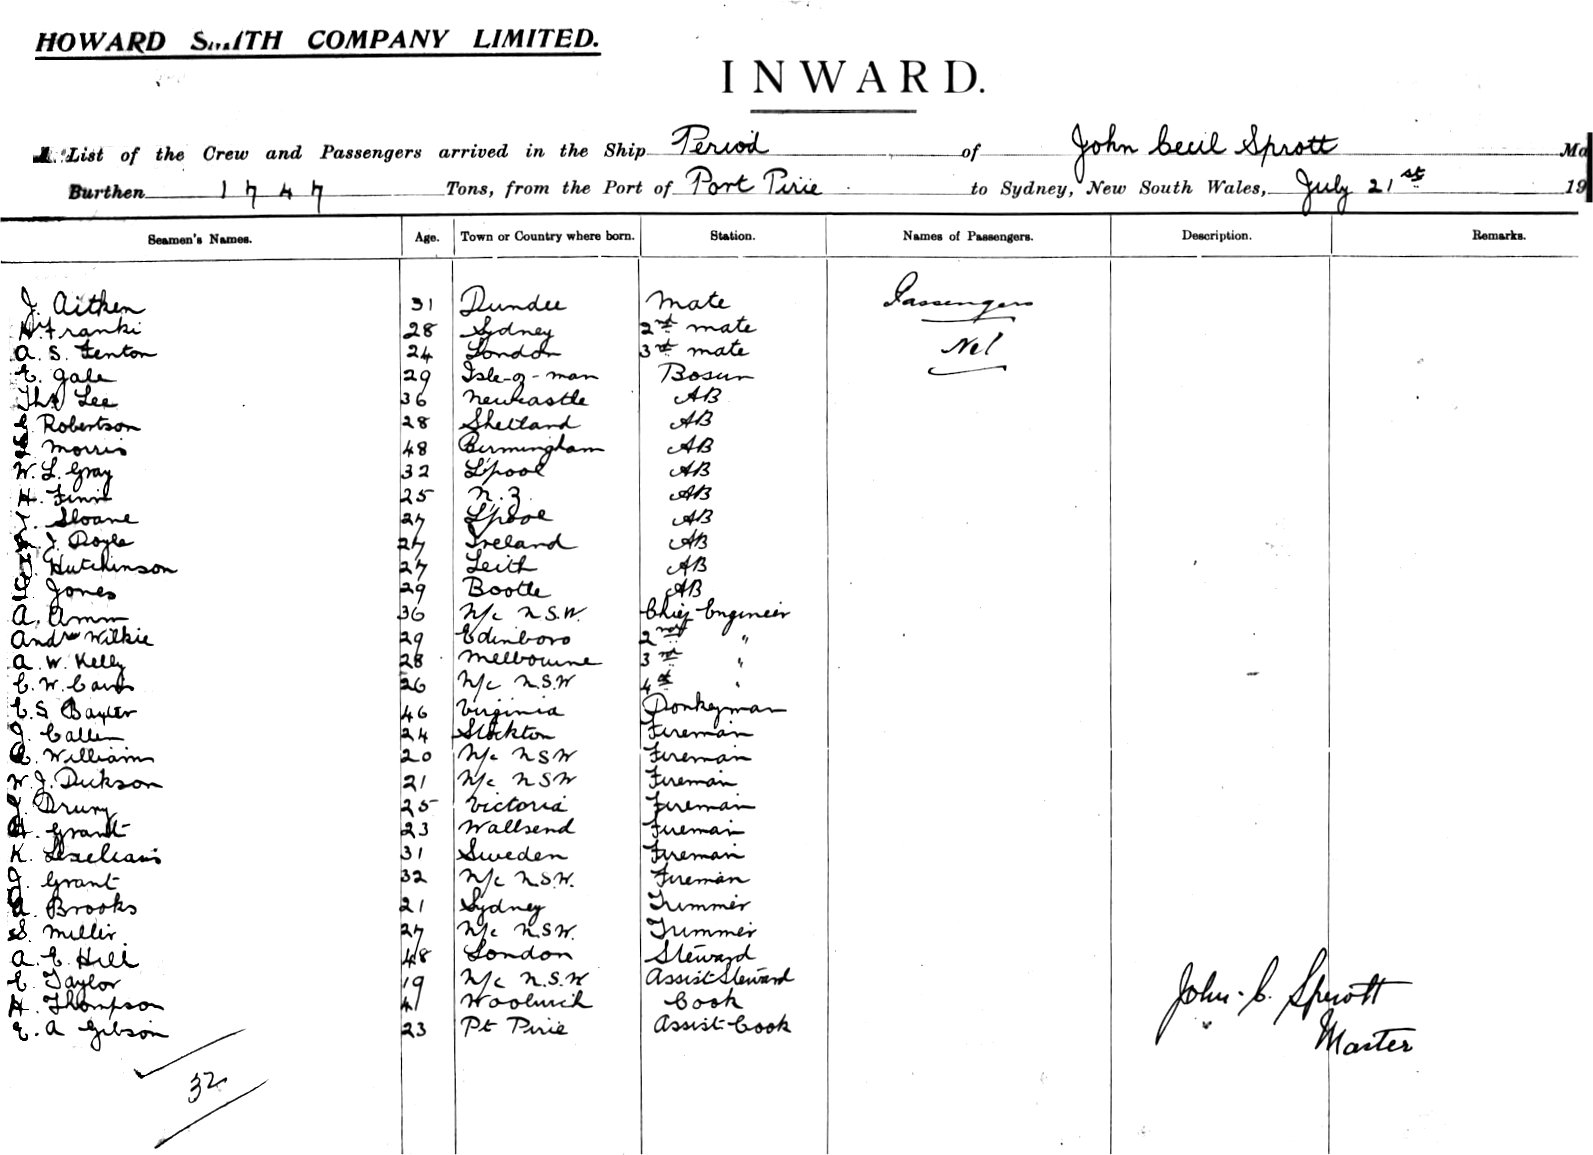 HOWARD SMITH COMPANY LIMITED.
INWARD.
List of the Crew and Passengers arrived in the Ship Period of John Cecil Sprott Ma
Burthen 1747 Tons, from the Port of Port Pirie to Sydney, New South Wales, July 21st 19
Seamen's Names. Age. Town or Country where born. Station. Names of Passengers. Description. Remarks.
J. Aitken 31 Dundee Mate Passengers
H Franki 28 Sydney 2nd mate
A. S. Fenton 24 London 3rd mate Nil
E. Gale 29 Isle-of-man Bosun
Thos Lee 36 Newcastle AB
Robertson 28 Shetland AB
Morris 48 Birmingham AB
W. L. Gray 32 L'pool AB
H. Finn 25 N.Z AB
Sloane 27 L'pool AB
J. Doyle 27 Ireland AB
Hutchinson 27 Leith AB
Jones 29 Bootle AB
A. Amm 36 N/c N.S.W. Chief Engineer
Andw Wilkie 29 Edinboro 2nd "
A. W. Kelly 28 Melbourne 3rd "
C. W. 26 N/c N.S.W 4th "
E. S. Baxter 46 Virginia Donkeyman
J. Callen 24 Stockton Fireman
Williams 20 N/c N S W Fireman
W. J. Dickson 21 N/c N.S.W Fireman
J. Drury 25 Victoria Fireman
H. Grant 23 Wallsend Fireman
K. 31 Sweden Fireman
J. Grant 32 N/c N.S.W. Fireman
A. Brooks 21 Sydney Trimmer
S. Miller 27 N/c N.S.W. Trimmer
A. E. Hill 48 London Steward
E. Taylor 19 N/c N.S.W Assist Steward
H. Thompson 41 Woolwich Cook
E. A Gibson 23 Pt Pirie Assist-Cook
John. C. Sprott
Master
32